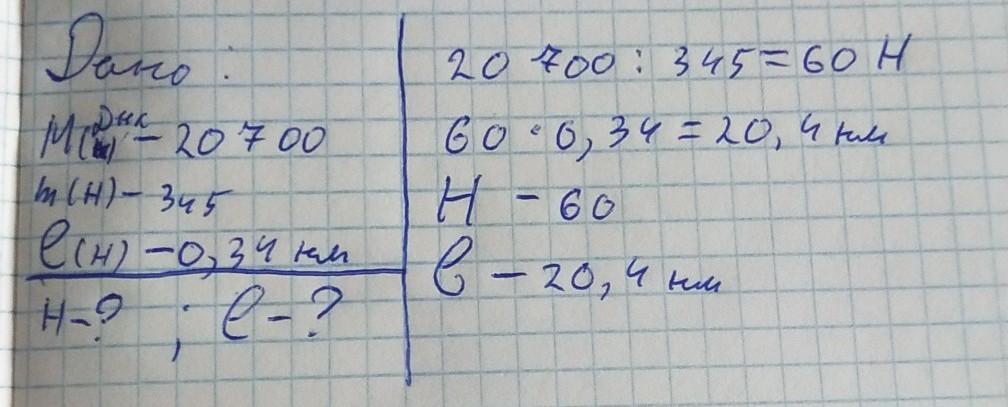 Дано:
M(ДНК) – 20 700
m(Н) – 345
l(Н) – 0,34 нм
Н – ? ; l – ?
20 700 : 345 = 60 Н
60 · 0,34 = 20,4 нм
Н – 60
l – 20,4 нм